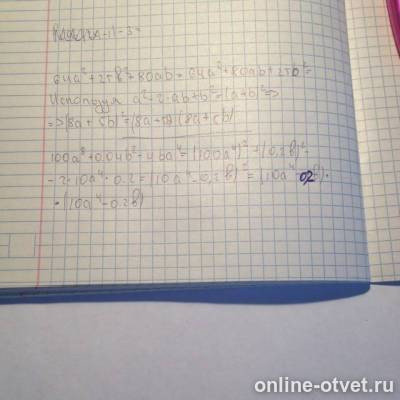 64a²+25b²+80ab=64a²+80ab+25b²=
Используя a²+2·ab+b²=(a+b)²=>
=>(8a+5b)²=(8a+5b)(8a+5b)
100a⁸+0.04b²-4ba⁴=(100a⁴)²+(0.2b)²-
-2·10a⁴·0.2=(10a⁴-0.2b)²=(10a⁴-0.2b)·
·(10a⁴-0.2b)
online-otvet.ru